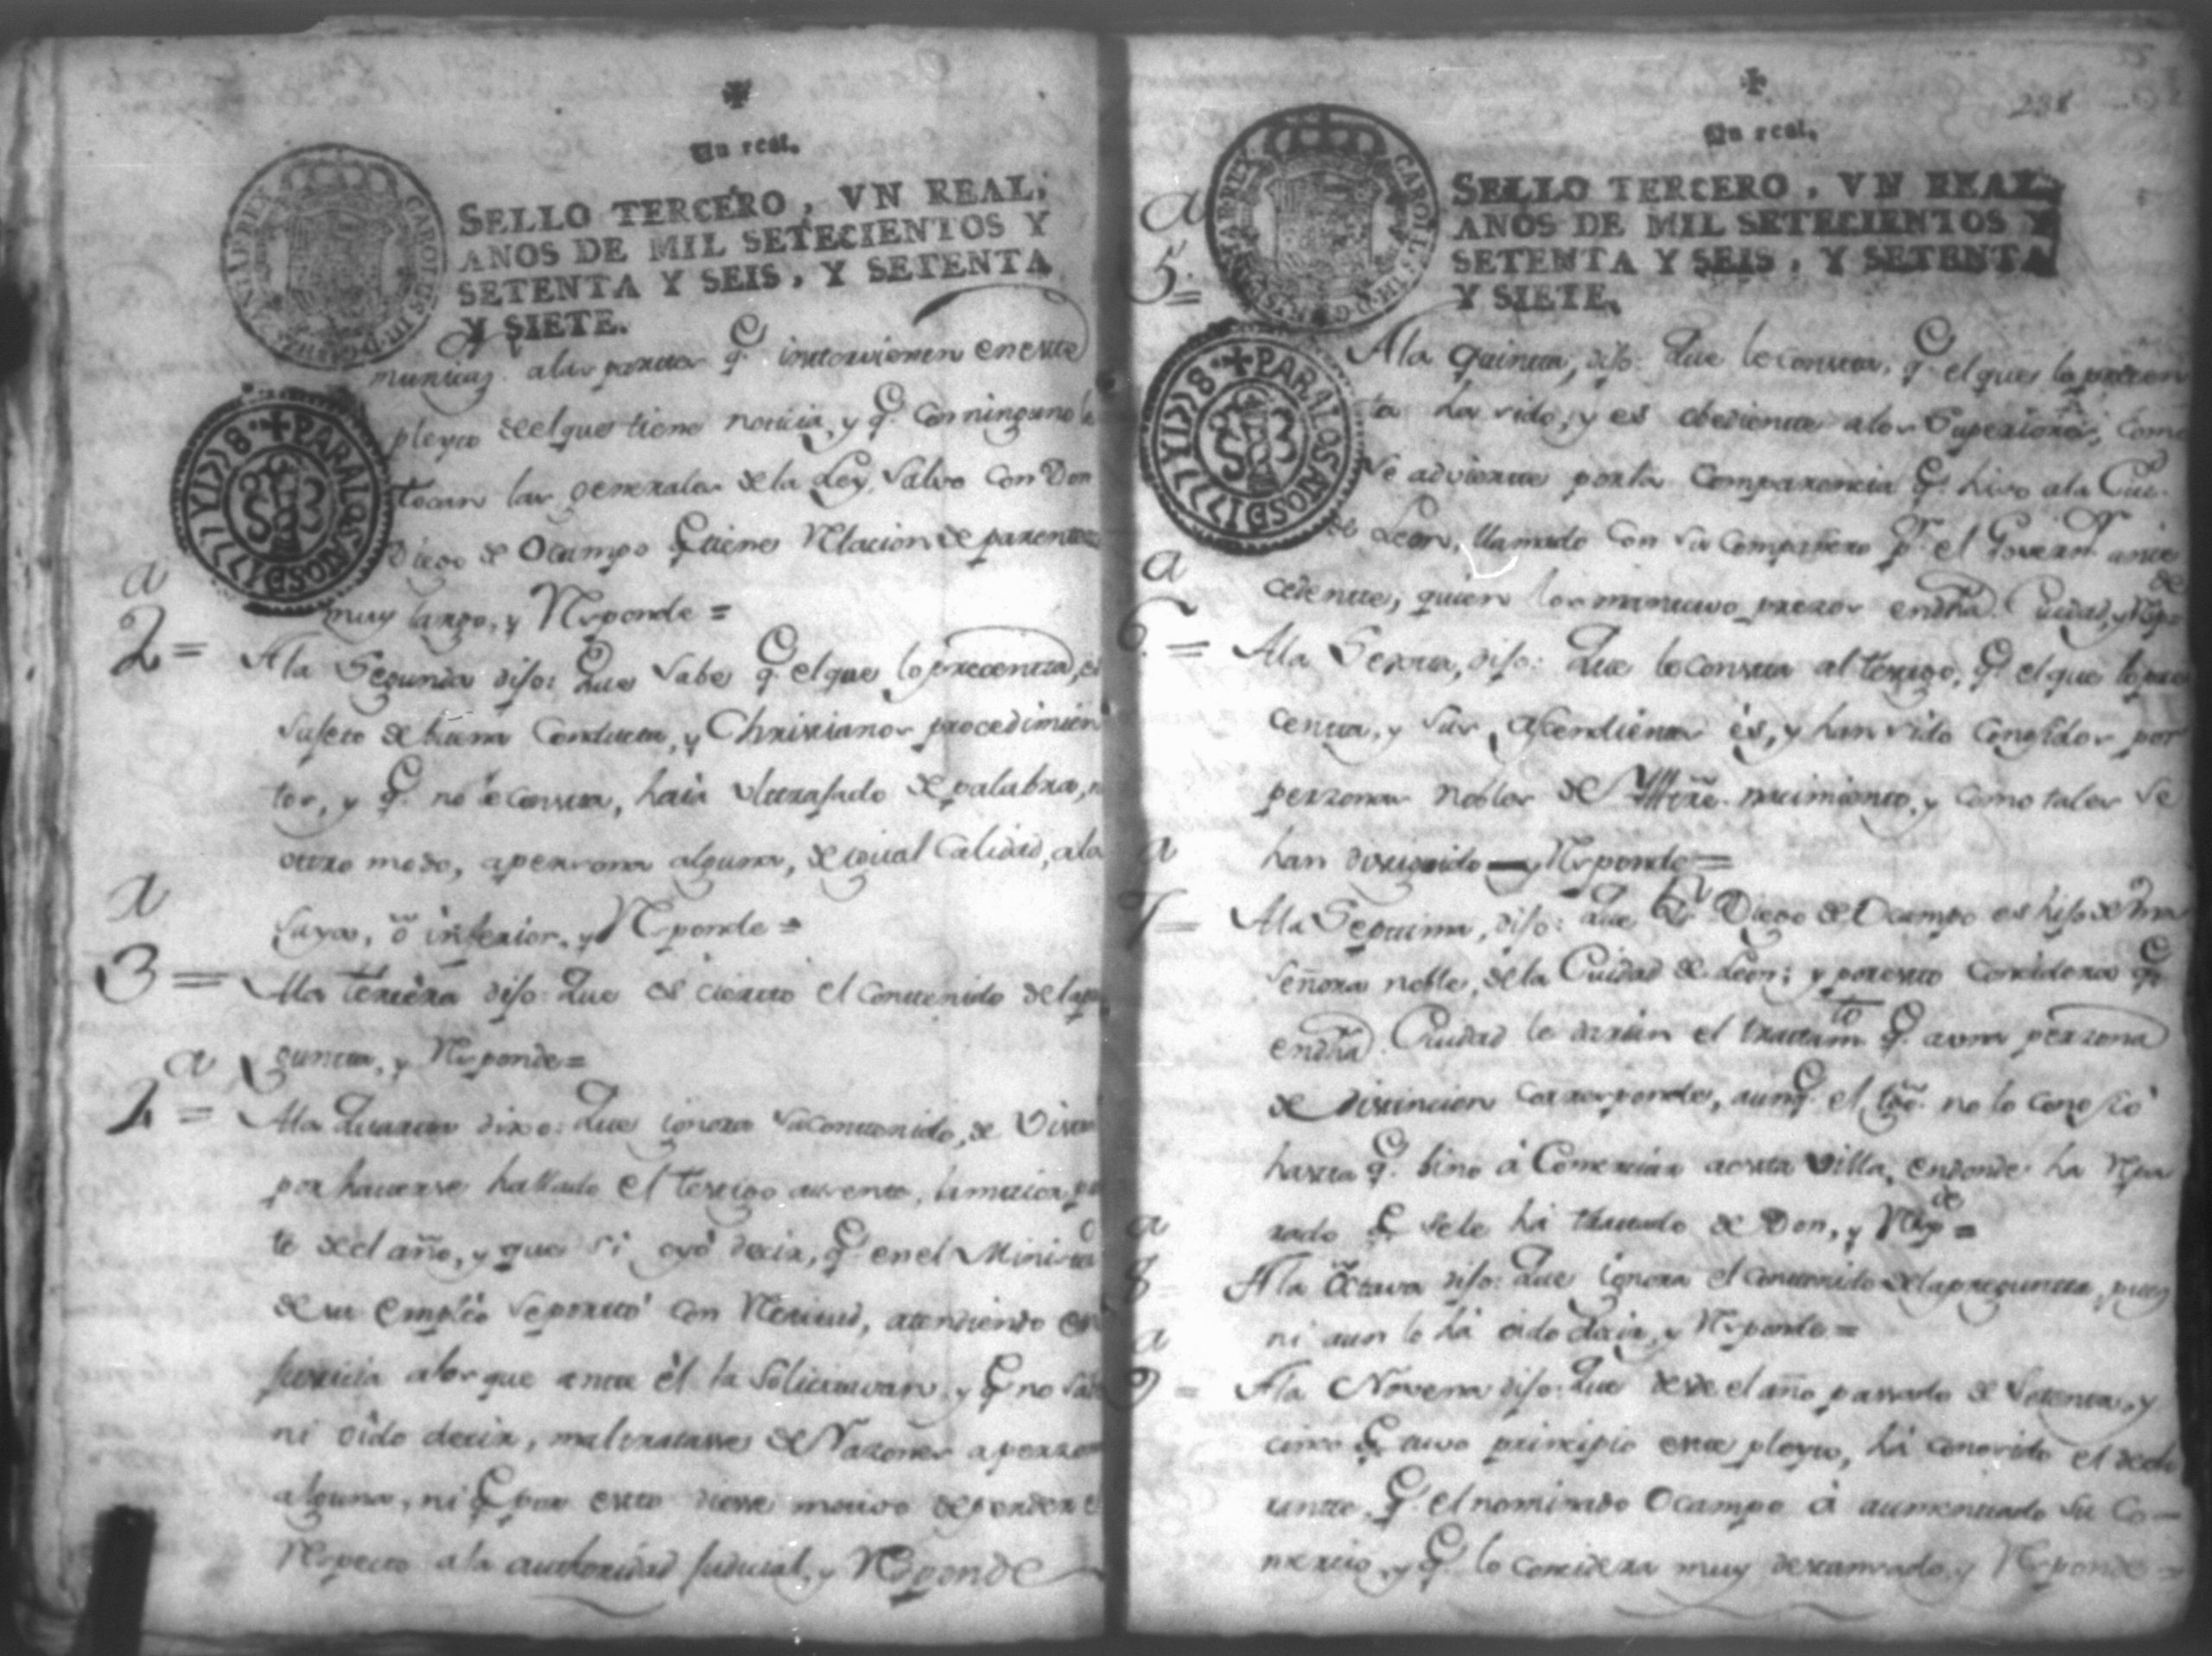 Un real.
SELLO TERCERO, VN REAL,
AÑOS DE MIL SETECIENTOS Y
SETENTA Y SEIS, Y SETENTA
Y SIETE.
CAROLUS III D G HISPANIAR REX
PARA LOS AÑOS DI777 YI778
alas partes q.e intervienen en este
pleyto de el que tiene noticia, y q.e con ninguno le
tocan las generales de la Ley, Salvo con Don
Diego de Ocampo q.e tiene Relacion de parentez
muy largo, y Responde =
2.a = A la Segunda dijo: Que Sabe q.e el que lo precenta, es
Sujeto de buena Conducta, y Christianos procedimien
tos, y q.e no le consta, haia ultrajado de palabra, n
otro modo, a persona alguna, de igual Calidad, ala
suya, ô inferior, y Responde =
3.a = Ala tercera dijo: Que es cierto el Contenido dela pre
gunta, y Responde =
4.a = Ala Quarta dixo: Que ignora su contenido, de Vista
por haverse hallado el Testigo ausente, la maior par
te de el año, y que si oyó decir, q.e en el Ministe
de su empleo se portó con Rectitud, atendiendo en
justicia alos que ante él la Solicitavan, y q.e no save
ni oido decir, maltratasse de Razones a perzona
alguna, ni q.e por esto diesse motivo de perder el
Respecto a la authoridad Judicial, y Responde
238
Un real.
SELLO TERCERO, VN REAL,
AÑOS DE MIL SETECIENTOS Y
SETENTA Y SEIS, Y SETENTA
Y SIETE.
CAROLUS III D G HISPANIAR REX
PARA LOS AÑOS DI777 YI778
5.a = A la quinta, dijo: Que le consta, q.e el que lo precen
ta ha sido, y es obediente alos Superiores, Como
se advierte por la Comparencia q.e hiso ala Ciu.d
de Leon, llamado con su compañero p.r el Govern.r ante
cedente, quien los mantuvo prezos en dha. Ciudad, y Resp.de
6.a = Ala Sexta, dijo: Que le consta al testigo, q.e el que lo pre
centa, y sus Ascendientes és, y han sido Conosidos por
perzonas nobles de nacimiento, y como tales se
han distinguido y Responde =
7.a = Ala Septima, dijo: Que D.n Diego de Ocampo es hijo de Una
Señora noble, de la Ciudad de Leon; y por esto Concidera q.e
en dha. Ciudad le darian el trattam.to q.e auna perzona
de distincion corresponde, aunq.e el tgo. no lo conosió
hasta q.e bino á Comerciar a esta Villa, en donde ha Repa
rado q.e se le há tratado de Don, y Resp.de =
8.a A la Octava dijo: Que ignora el contenido de la pregunta, pues
ni aun lo há oido decir, y Responde =
9.a = A la Novena dijo: Que desde el año passado de Setenta, y
cinco q.e tuvo principio este pleyto, há conosido el decla
rante, q.e el nominado Ocampo á aumentado su Co-
mercio, y q.e lo concidera muy descansado, y Responde =